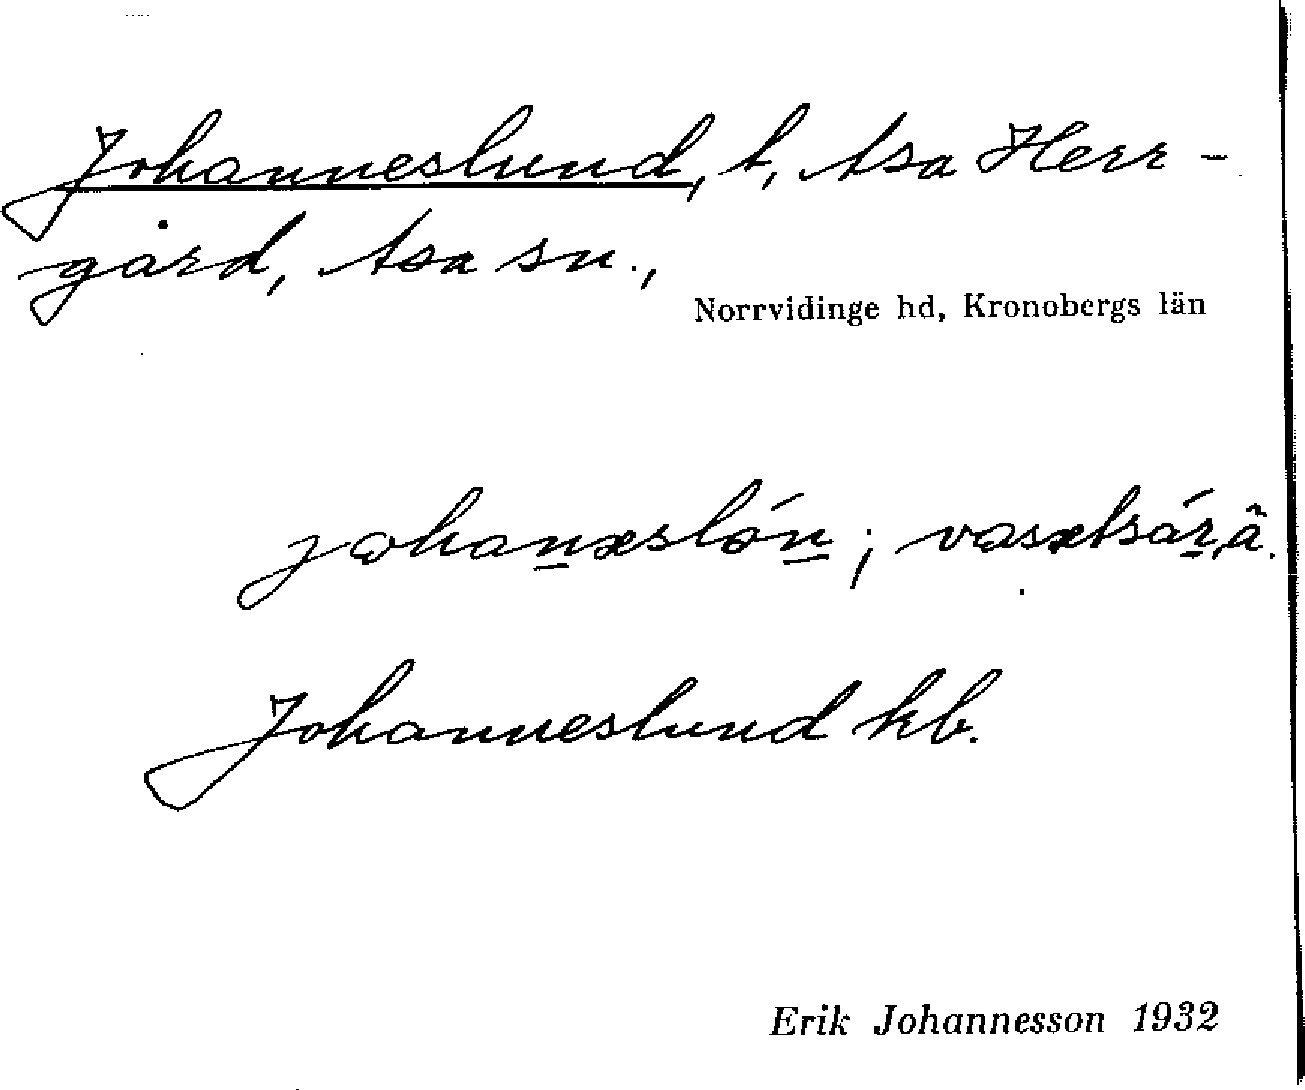 Johanneslund, t, Asa Herr-
gård, Asa sn.,
Norrvidinge hd, Kronobergs län
Johanneslund kb.
Erik Johannesson 1932